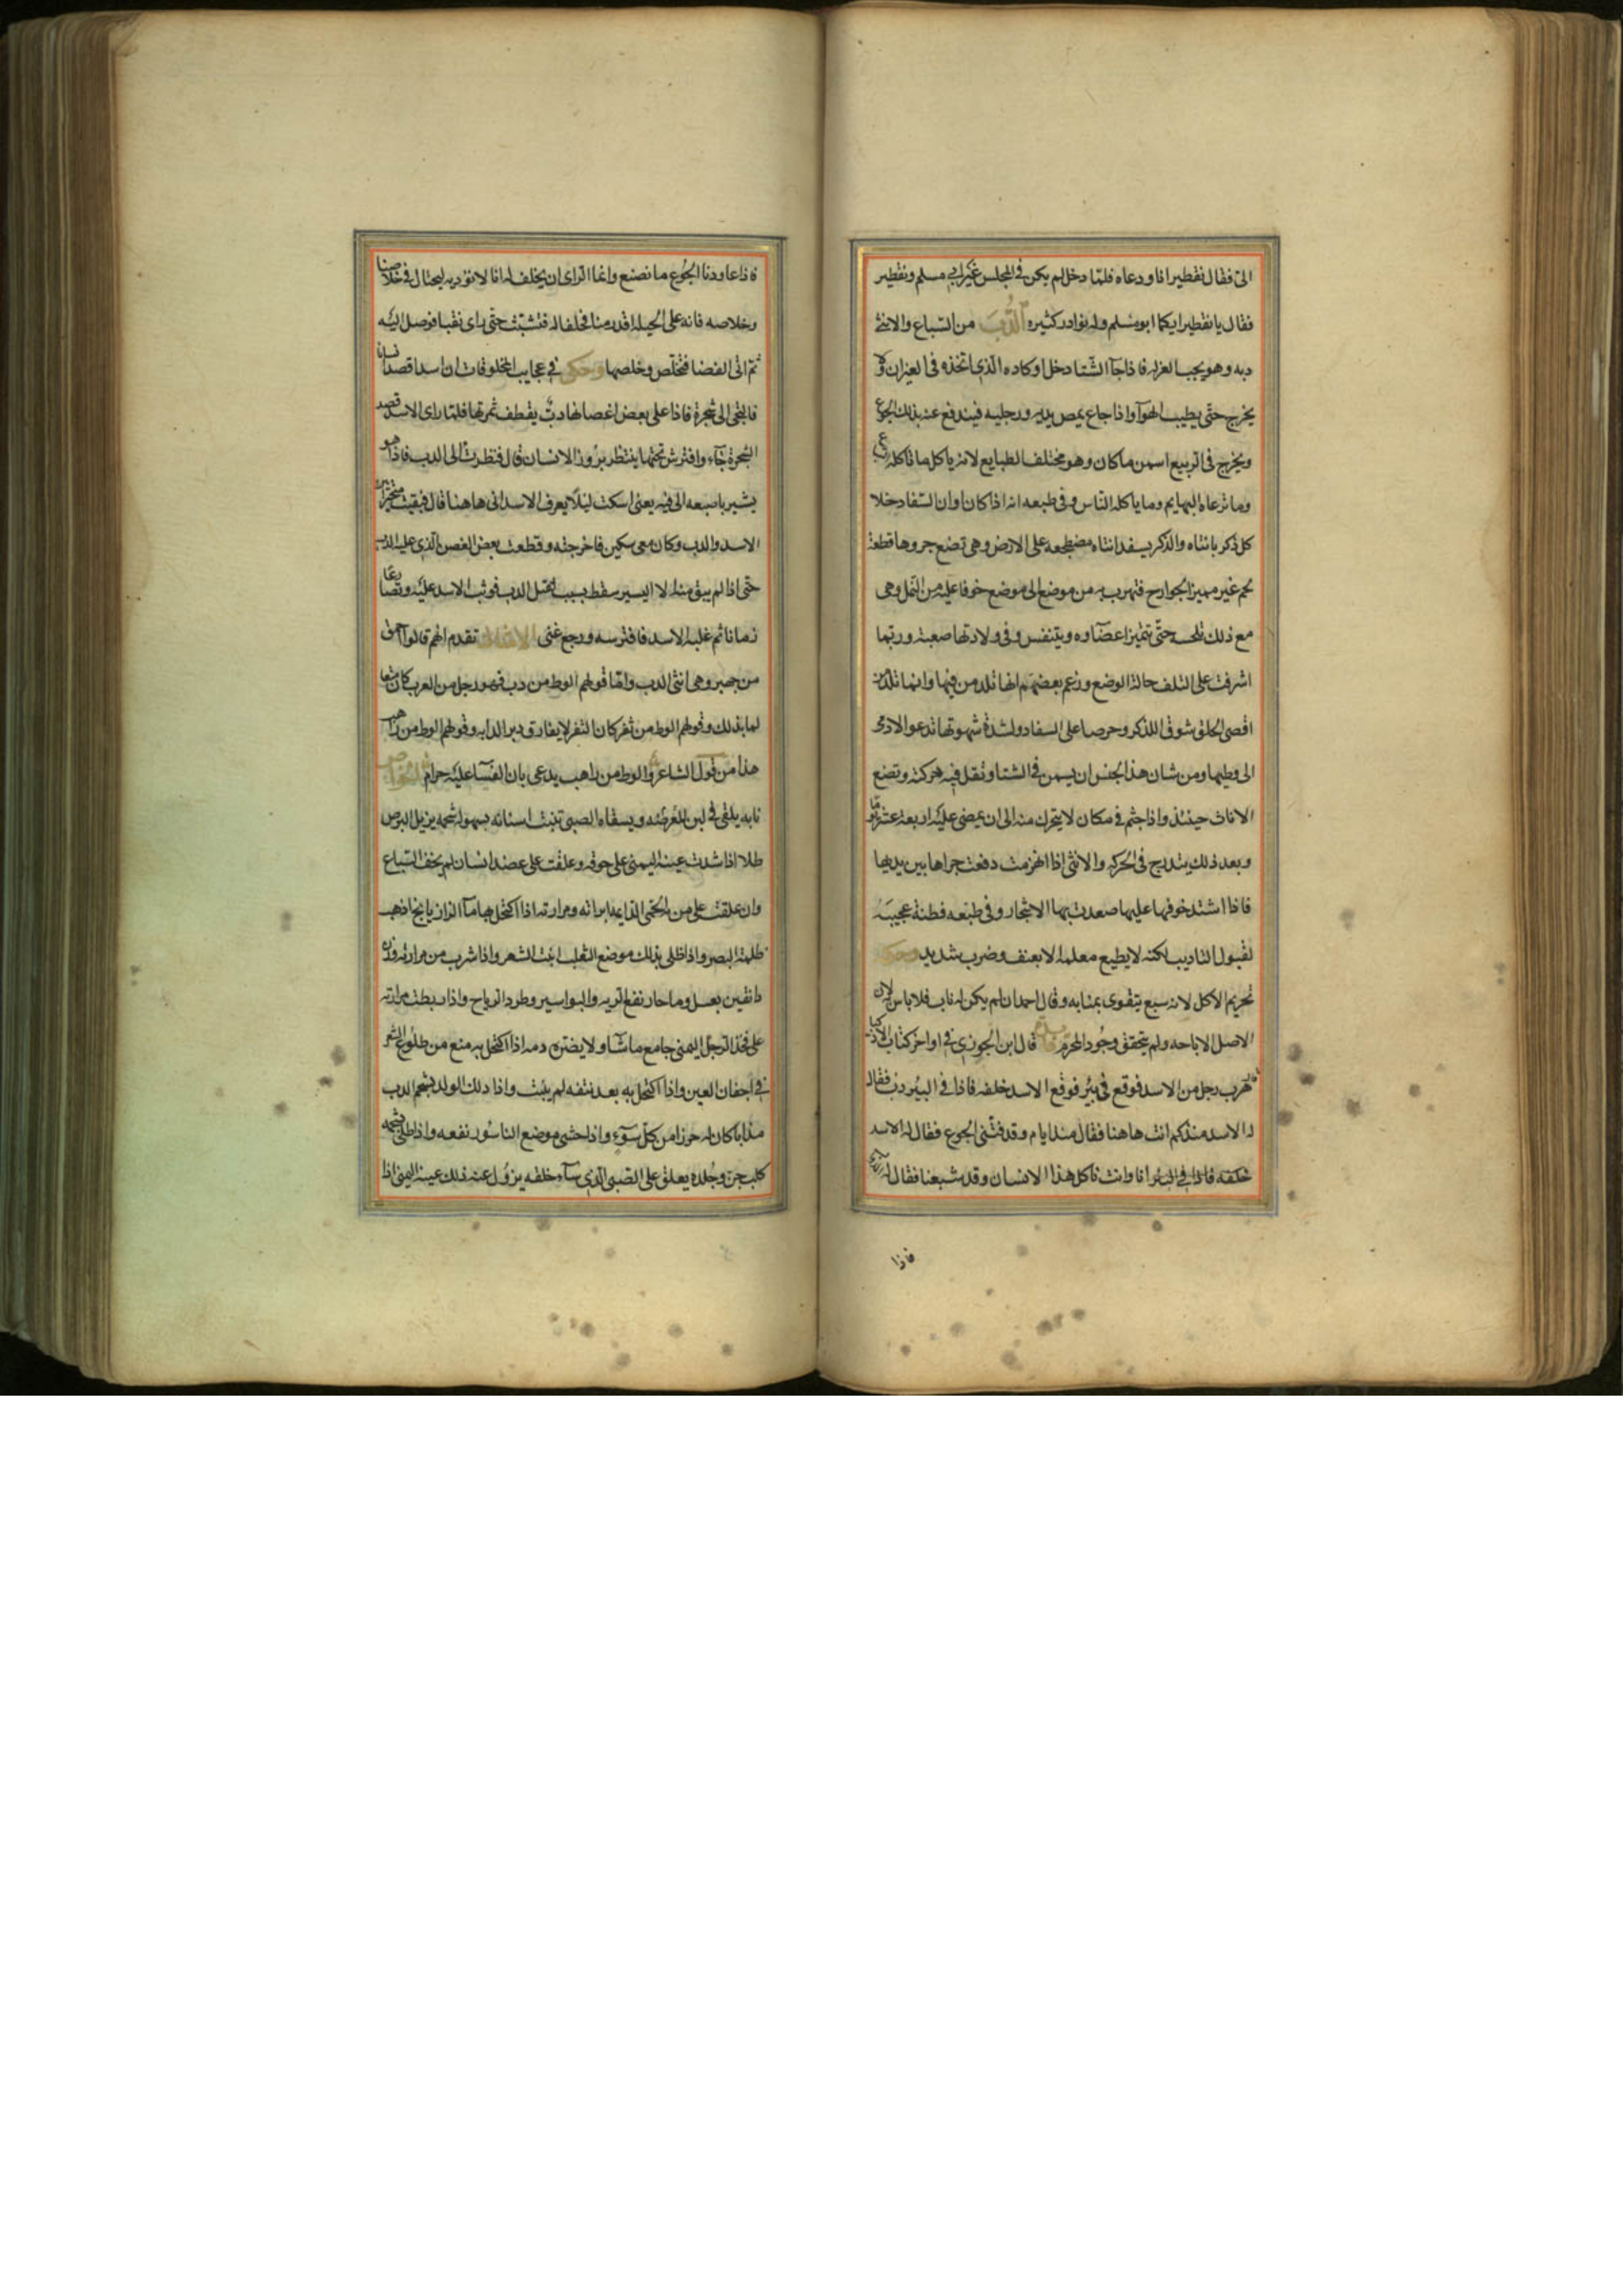 الىّ فقال نقطير انا ودعاه فلمّا دخل لم يكن فى المجلس غير ابى مسلم ونقطير
فقال يا نقطير ايكما ابو مسلم وله نوادر كثيره الدُّبّ من السّباع والانثى
دبه وهو يحب العزله فاذا جآ الشّتا دخل اوكاده الّذى اتخذه فى الغيران ولا
يخرج حتّى يطيب الهوآ واذا جاع يمص يديه ورجليه فيندفع عنه بذلك الجوع
ويخرج فى الربيع اسمن ما كان وهو مختلف الطبايع لانه ياكل ما تاكله
وما ترعاه البهايم وما ياكله النّاس وفى طبعه انه اذا كان اوان السّفاد خلا
كل ذكر بانثاه والذكر يسفد انثاه مضطجعه على الارض وهى تضع جروها قطعة
لحم غير مميز الجوارح فتهرب به من موضع الى موضع خوفا عليه من النّمل وهى
مع ذلك تلحسه حتّى تتميز اعضآوه ويتنفس وفى ولادتها صعبة وربّما
اشرفت على التلف حالة الوضع وزعم بعضهم انها تلد من فيها وانما تلده
اقصى الخلق شوقا للذكر وحرصا على السفاد ولشدة شهوتها تدعو الادمى
الى وطيها ومن شان هذا الجنس ان يسمن فى الشتا وتقل فيه حركته وتضع
الاناث حينئذ واذا جثم فى مكان لا يتحرك منه الى ان يمضى عليه اربعة عشر يوما
وبعد ذلك يتدرج فى الحركه والانثى اذا انهزمت دفعت جراها بين يديها
فاذا اشتد خوفها عليها صعدت بها الاشجار وفى طبعه فطنة عجيبة
لقبول التاديب لكنه لا يطيع معلمه الا بعنف وضرب شديد وحكمه
تحريم الاكل لانه سبع يتقوى بنابه وقال احمد ان لم يكن له ناب فلا باس لان
الاصل الاباحه ولم يتحقق وجود المحرّم قال ابن الجوزى فى اواخر كتاب الاذكيا
هرب رجل من الاسد فوقع فى بئر فوقع الاسد خلفه فاذا فى البئر دب فقال
له الاسد منذ كم انت هاهنا فقال منذ ايام وقد قتلنى الجوع فقال له الاسد
انا وانت ناكل هذا الانسان وقد شبعنا فقال له
فاذا
فاذا عاودنا الجُوع ما نصنع وانما الراى ان يحلف له انا لا نوذيه ليحتال فى خلاصنا
وخلاصه فانه على الحيله اقدر منا فحلفا له فتشبّث حتّى راى نقبا فوصل اليه
ثم اتى الفضا فتخلّص وخلصهما وحكى فى عجايب المخلوقات ان اسدا قصد انسانا
فالتجى الى شجرة فاذا على بعض اغصانها دبّ يقطف ثمرتها فلمّا راى الاسد قصد
الشجرة جآء وافترش تحتها ينتظر نزول الانسان قال فنظرت الى الدب فاذا هو
يشير باصبعه الى فيه يعنى اسكت ليلا يعرف الاسد انى هاهنا قال فبقيت متحيرا بين
الاسد والدب وكان معى سكين فاخرجته وقطعت بعض الغصن الّذى عليه الدب
حتى اذا لم يبق منه الا اليسير سقط بسبب ثقل الدب فوثب الاسد عليه وتصارعا
زمانا ثم غلبه الاسد فافترسه ورجع عنى الامثال تقدم انهم قالوا احمق
من جهبر وهى انثى الدب وامّا قولهم الوط من دب فهو رجل من العرب كان متعا
لما بذلك وقولهم الوط من ثفر كان الثفر لا يفارق دبر الدابه وقولهم الوط من راهب
هذا من قول الشاعر والوط من راهب يدعى بان النسآ عليه حرام الخواص
نابه يلقى فى لبن المرضعه ويسقاه الصبى تنبت اسنانه بسهوله شحمه يزيل البرص
طلا اذا شدت عينه اليمنى على خرقه وعلقت على عضد انسان لم يخف السّباع
وان علقت على من به الحمى الدايمه ابراته ومرارته اذا اكتحل بها مع مآ الرازيانج اذهب
ظلمة البصر واذا طلى بذلك موضع الثعلب انبت الشعر واذا شرب من مرارته وزن
دانقين بعسل وما حار نفع الريه والبواسير وطرد الرياح واذا ربطت مرارته
على فخذ الرجل اليمنى جامع ما شآ ولا يضره دمه اذا اكتحل به منع من طلوع الشعر
فى اجفان العين واذا اكتحل به بعد نتفه لم ينبت واذا دلك الولد بشحم الدب
مذابا كان له حرزا من كل سوء واذا حشى موضع الناسور نفعه واذا طلى بشحمه
كلب جن وجلده يعلق على الصّبى الّذى سآء خلقه يزول عنه ذلك عينه اليمنى اذا